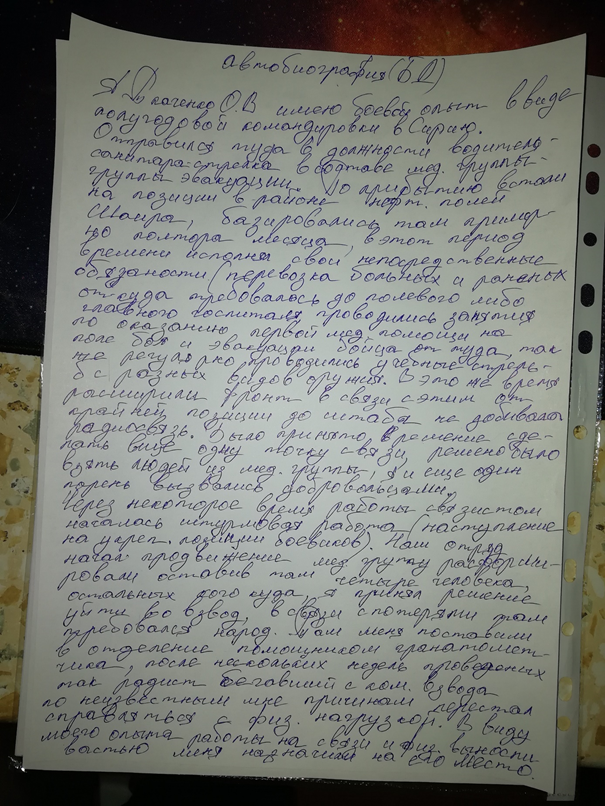 автобиография (Б Д)
Я Ткаченко О.В имею боевой опыт в виде
полугодовой командировки в Сирию.
Отправился туда в должности водитель-
санитар-стрелка в составе мед. группы-
группы эвакуации. По прибытию встали
на позиции в районе нефт. полей
Шаира, базировались там пример-
но полтора месяца, в этот период
времени исполнял свои непосредственные
обязаности (перевозка больных и раненых
откуда требовалось до полевого либо
главного госпиталя, проводились занятия
по оказанию первой мед. помощи на
поле боя и эвакуации бойца от туда, так
же регулярно проводились учебные стрель-
бы с разных видов оружия. В это же время
расширили фронт в связи с этим от
крайней позиции до штаба не добивала
радиосвязь. Было принято решение сде-
лать еще одну точку связи, решено было
взять людей из мед. группы, я и еще один
парень вызвались добровольцами.
Через некоторое время работы связистом
началась штурмовая работа (наступление
на укреп. позиции боевиков). Наш отряд
начал продвижение мед. группу расформи-
ровали оставив там четыре человека,
остальных кого куда, я принял решение
уйти во взвод, в связи с потерями там
требовался народ. Там меня поставили
в отделение помощником гранатомет-
чика, после нескольких недель проведеных
так радист бегавший с ком. взвода
по неизвестным мне причинам перестал
справляться с физ. нагрузкой. В виду
моего опыта работы на связи и физ. выносли
востью меня назначили на его место.